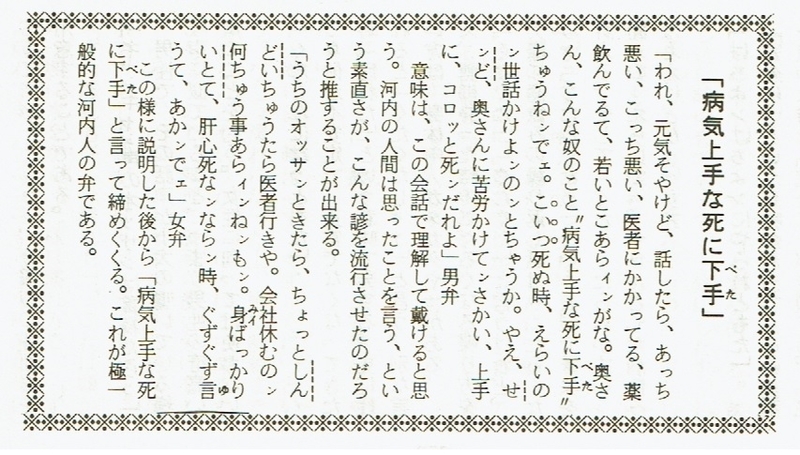 「病気上手な死に下手」
べた
「われ、元気そやけど、話したら、あっち
悪い、こっち悪い、医者にかかってる、薬
飲んでるて、若いとこあらィンがな。奥さ
ん、こんな奴のこと〝病気上手な死に下手〟
べた
ちゅうねンでェ。こいつ死ぬ時、えらいの
ン世話かけよンのンとちゃうか。やえ、せ
ンど、奥さんに苦労かけてンさかい、上手
に、コロッと死ンだれよ」男弁
意味は、この会話で理解して戴けると思
う。河内の人間は思ったことを言う、とい
う素直さが、こんな諺を流行させたのだろ
うと推することが出来る。
「うちのオッサンときたら、ちょっとしん
どいちゅうたら医者行きや。会社休むのン
何ちゅう事あらィンねンもン。身ばっかり
いとて、肝心死なンならン時、ぐずぐず言
ゅ
うて、あかンでェ」女弁
この様に説明した後から「病気上手な死
に下手」と言って締めくくる。これが極一
べた
般的な河内人の弁である。